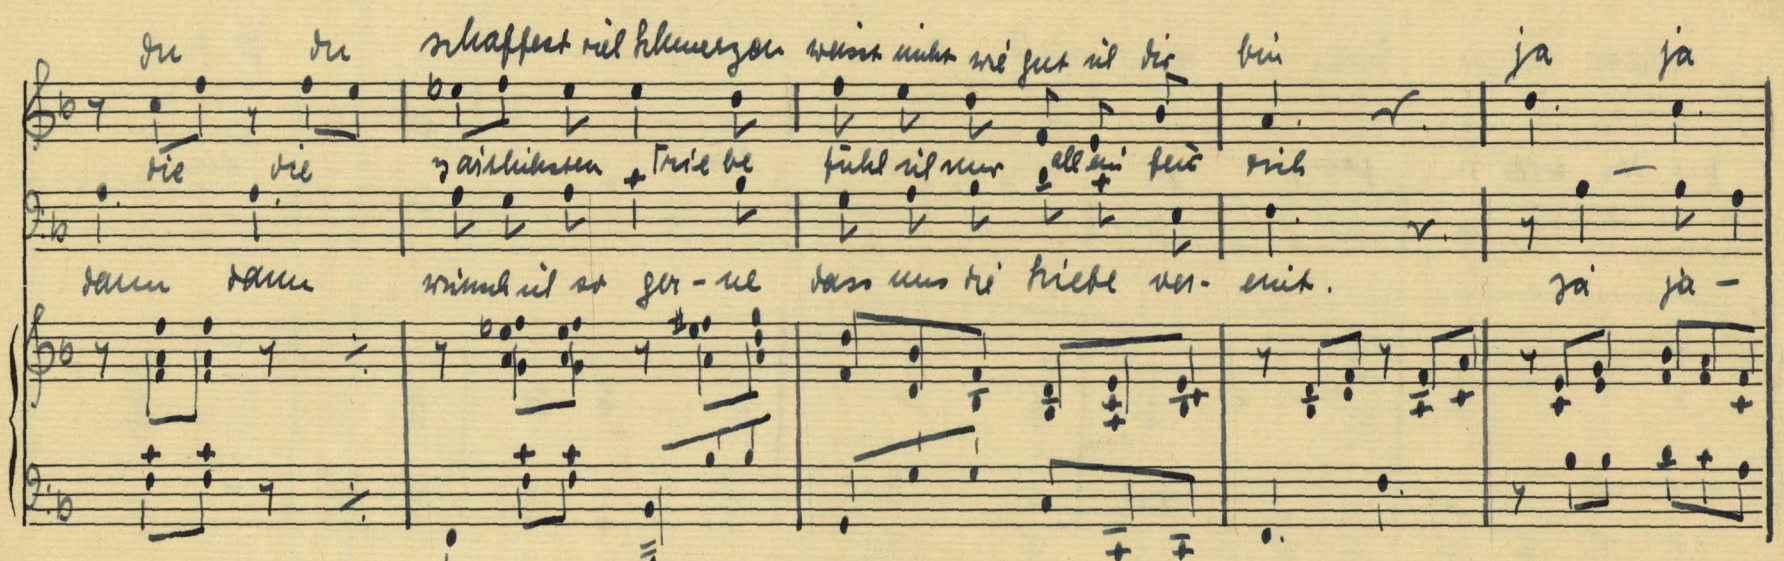 du du schaffest viel Schmerzen weisst nicht wie gut ich dir bin ja ja
die die zärtlichsten Triebe fühl ich nur allein für dich —
dann dann wünsch ich so ger-ne dass uns die Liebe ver-einit. ja ja —